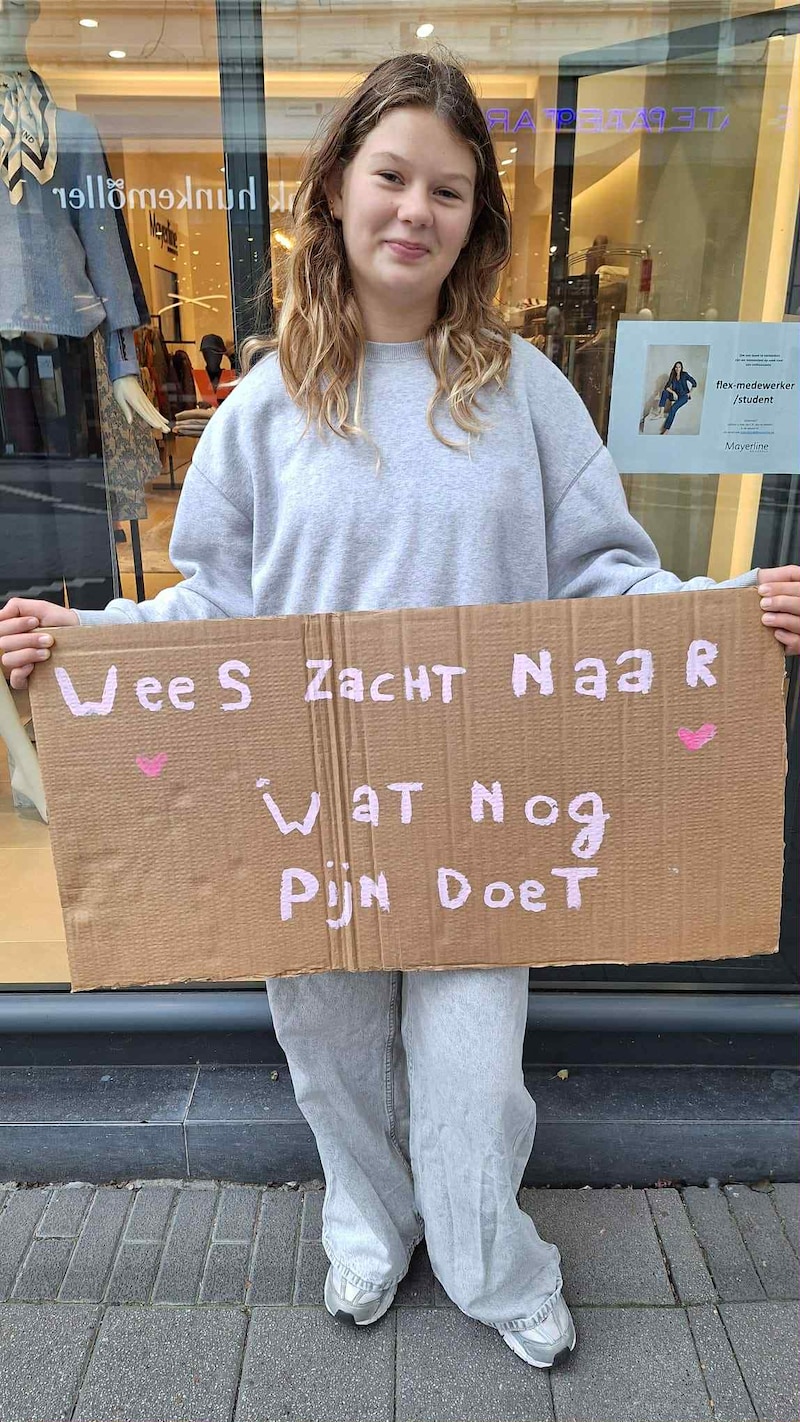 hunkemöller
Mayerline
flex-medewerker
/student
Mayerline
Wees zacht naar
wat nog
pijn doet